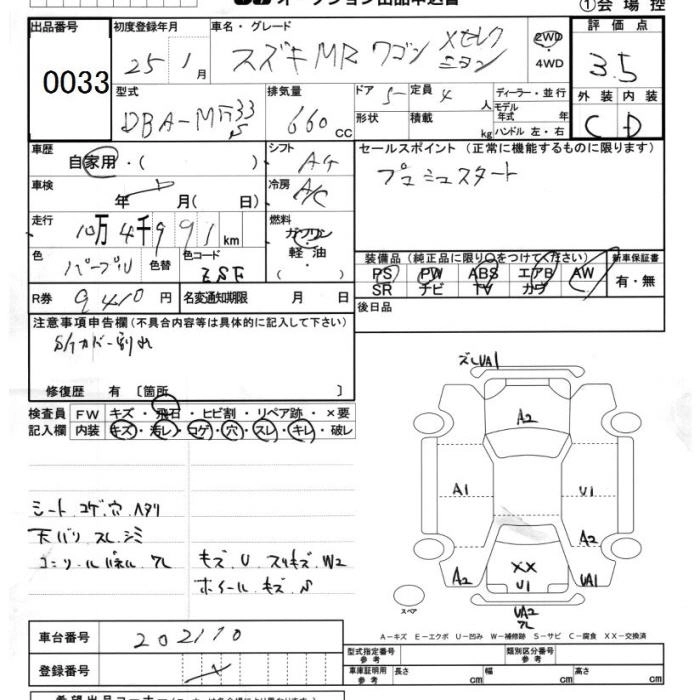 オークション出品申込書
①会場控
出品番号 0033
初度登録年月 25 1月
車名・グレード スズキ MRワゴン Xセレクション
2WD・4WD
評価点 3.5
外装 C 内装 D
型式 DBA-MF33S
排気量 660cc
ドア 5
形状
定員 4人
積載 kg
ディーラー・並行
モデル年式 年
ハンドル 左・右
車歴 自家用・( )
シフト AT
セールスポイント (正常に機能するものに限ります)
プッシュスタート
車検 年 月(日)
冷房 A/C
走行 10万4千991km
燃料 ガソリン・軽油・( )
色 パープル 色替
色コード ZSF
装備品 (純正品に限り○をつけてください)
新車保証書 有・無
PS PW ABS エアB AW
SR ナビ TV カワ
R券 9410円
名変通知期限 月 日
後日品
注意事項申告欄(不具合内容等は具体的に記入して下さい)
割れ
修復歴 有 〔箇所 〕
検査員記入欄
FW キズ・飛石・ヒビ割・リペア跡・×要
内装 キズ・汚レ・コゲ・穴・スレ・キレ・破レ
シート コゲ.穴.ヘタリ
天バリ スレ.シミ
コンソールパネル ワレ
キズ.U スリキズ.W2
ホイール キズ.S
ズレUA1
A2
A1 U1
A2
A2 XX UA1
U1
UA2
ワレ
スペア
A-キズ E-エクボ U-凹み W-補修跡 S-サビ C-腐食 XX-交換済
車台番号 202110
登録番号
型式指定番号 参考
類別区分番号 参考
車庫証明用 参考 長さ cm 幅 cm 高さ cm